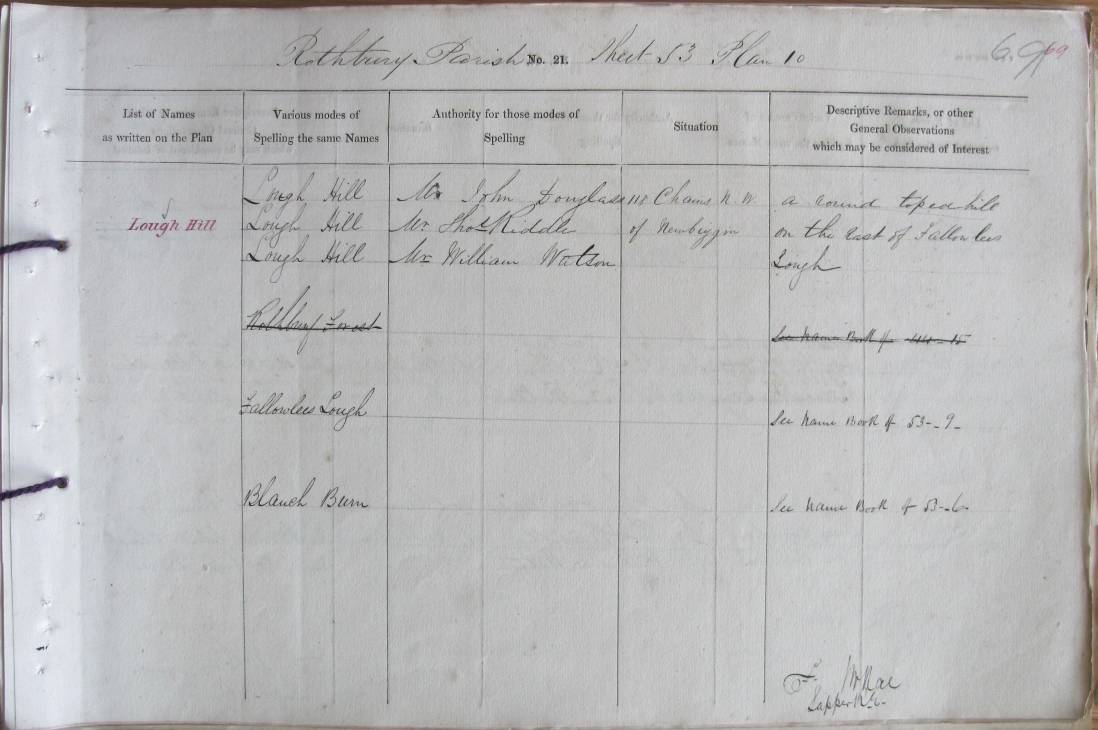 Rothbury Parish No. 21. Sheet 53 Plan 10
69
List of Names
as written on the Plan
Various modes of
Spelling the same Names
Authority for those modes of
Spelling
Situation
Descriptive Remarks, or other
General Observations
which may be considered of Interest
Lough Hill
Lough Hill
Lough Hill
Lough Hill
Mr John Douglass
Mr. Thos Riddle
Mr William Watson
118 Chains N. W.
of Newbiggin
a round toped hill
on the East of Fallowlees
Lough
Rothbury Forest
See Name Book of 44 - 15
Fallowlees Lough
See Name Book of 53 - 9 -
Blanch Burn
See Name Book of 53 - 6 -
Sapper R.E.